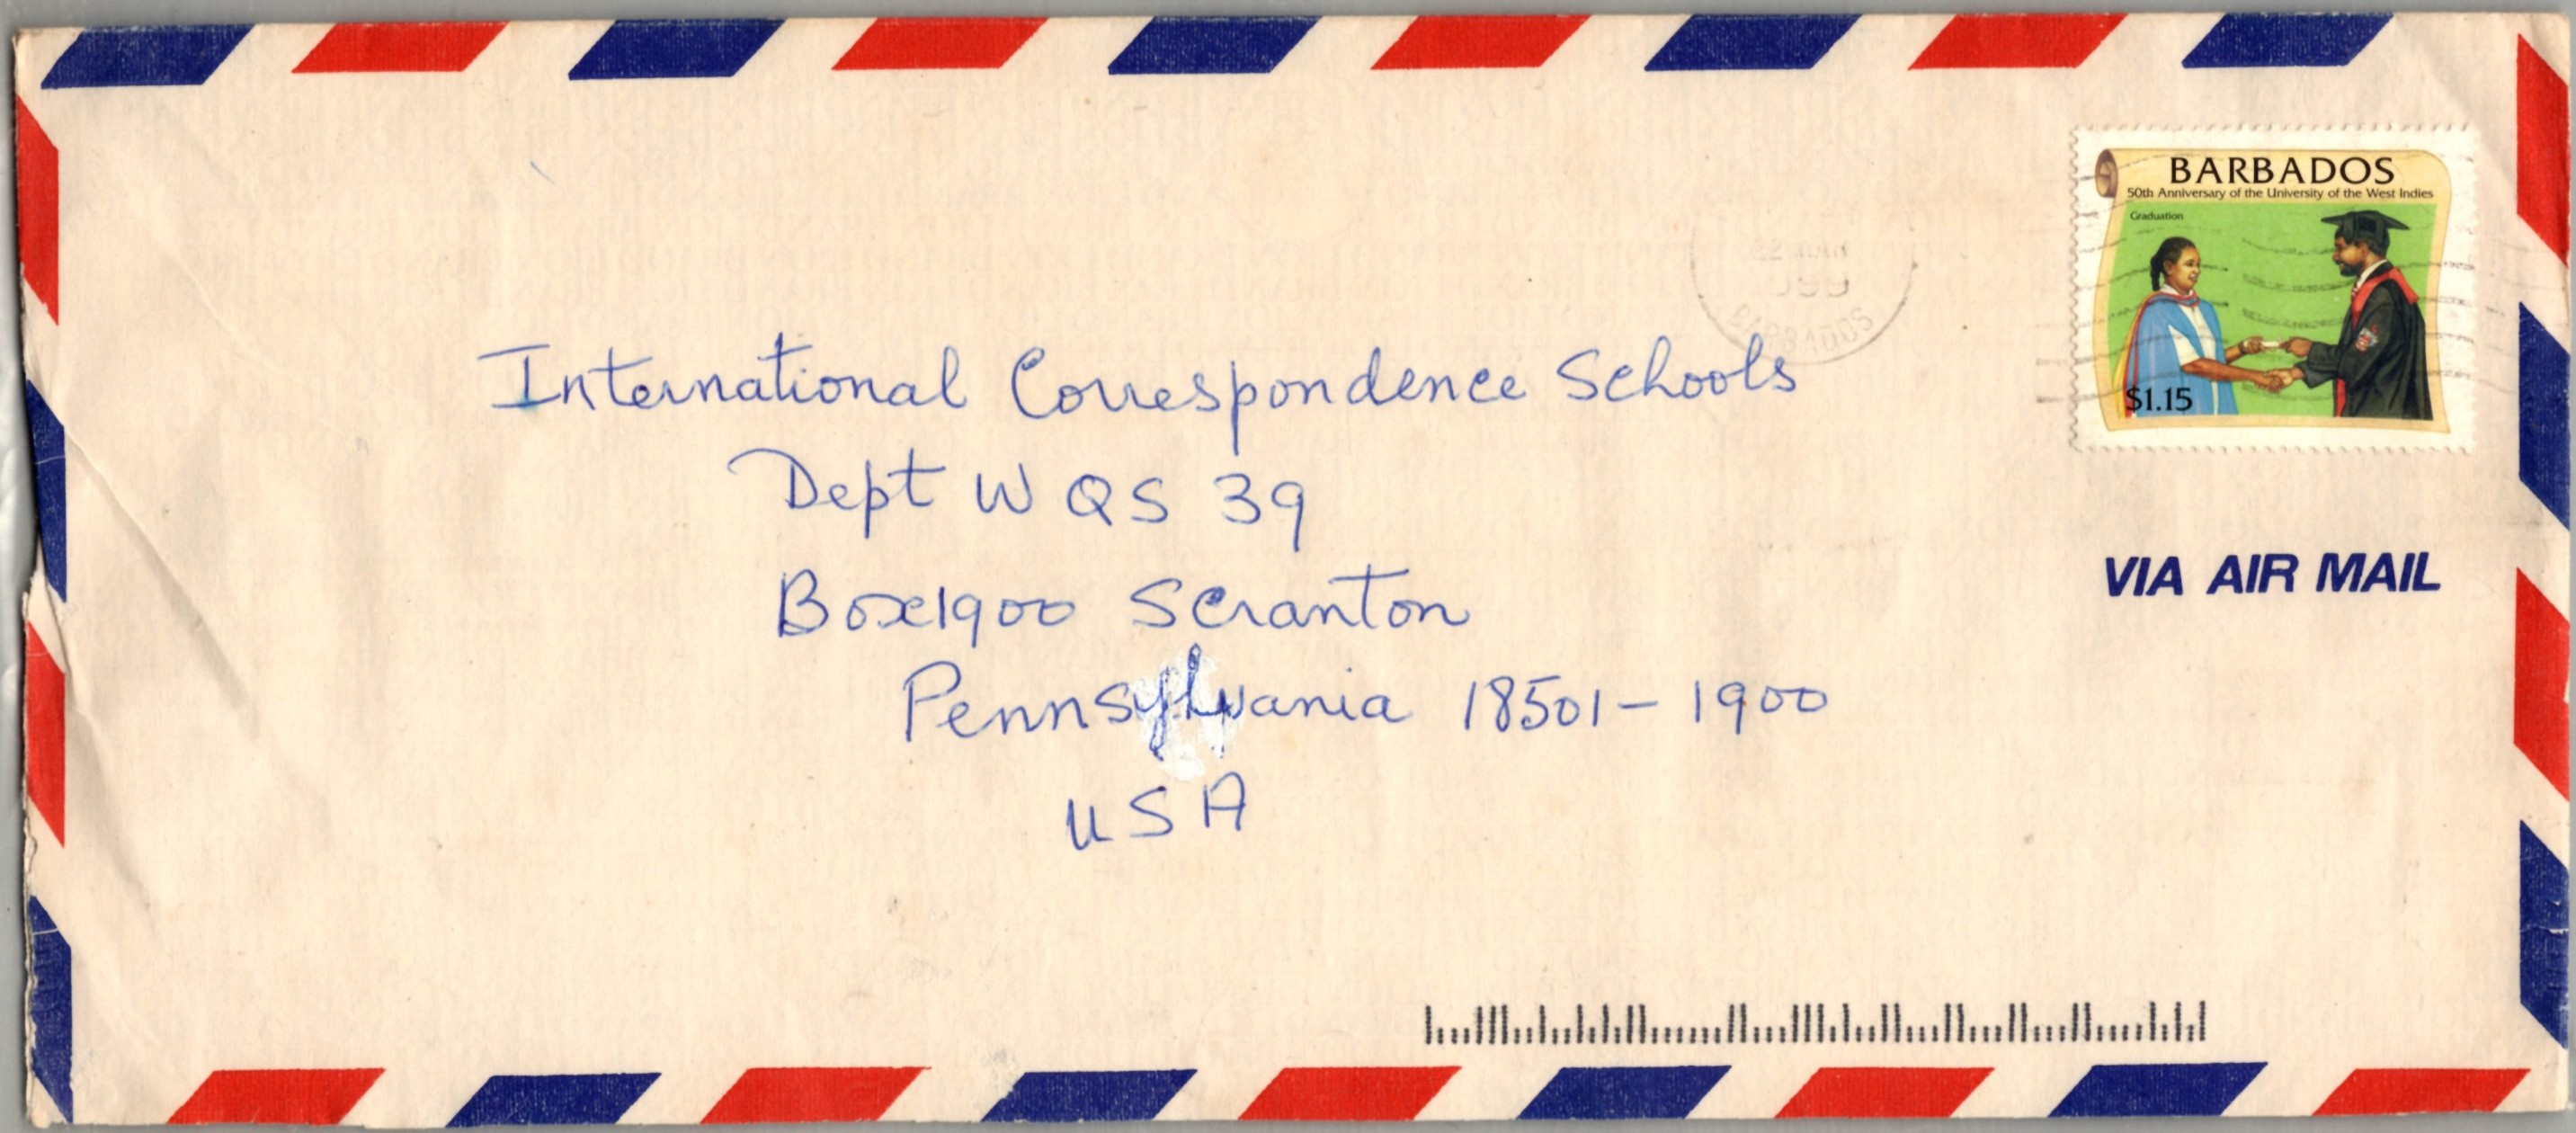 BARBADOS
50th Anniversary of the University of the West Indies
Graduation
$1.15
BARBADOS
VIA AIR MAIL
International Correspondence Schools
Dept W QS 39
Box 1900 Scranton
Pennsylvania 18501-1900
USA